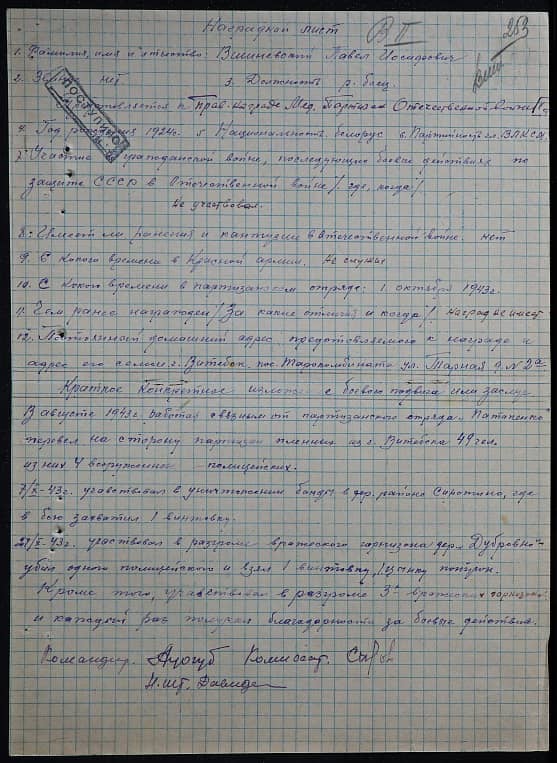 Наградной лист
В II
253
1. Фамилия, имя и отчество: Вишневский Павел
2. Звание нет 3. Должность р. боец.
ПОСТУПИЛО
Представляется к Прав. награде Мед. Партизан Отечественной Войны II
4. Год рождения 1924г. 5 Национальность белорус 6. Партийность чл. ВЛКСМ
7. Участие в гражданской войне, последующих боевых действиях по
защите СССР в Отечественной войне /где, когда/.
Не участвовал.
8. Имеет ли ранения и контузии в Отечественной войне. нет
9. С Кокого времени в Красной армии. Не служил
10. С Кокого времени в партизанском отряде: 1 октября 1943г.
11. Чем ранее награжден /За какие отличия и когда/. наград не имеет
12. домашний адрес предстовляемого к награде и
адрес его семьи г. Витебск пос. ул. Тарная д. № 2а
Краткое конкретное излож. боевого подвига или заслуг
В августе 1943г. работая связным от партизанского отряда
перевел на сторону партизан пленных из г. Витебска 49 чел.
из них 4 вооруженных полицейских.
7/X-43г. участвовал в уничтожении банды в дер. района Сиротино, где
в бою захватил 1 винтовку.
участвовал в разгроме вражеского гарнизона дер. Дубровно
убил одного полицейского и взял 1 винтовку, 1 цинку патрон.
Кроме того, участвовал в разгроме 3х вражеских гарнизонов
и каждый раз получал благодарности за боевые действия.
Командир. Комиссар.
Н. шт.